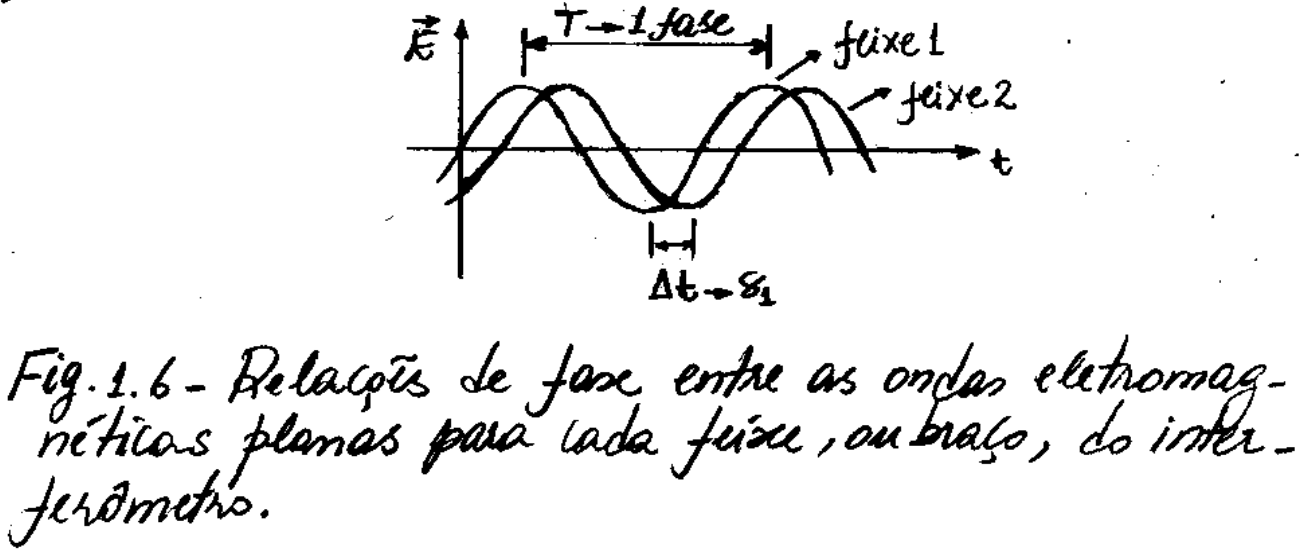 T → 1 fase
E⃗
feixe 1
feixe 2
t
Δt → δ₁
Fig. 1.6 - Relações de fase entre as ondas eletromag-
néticas planas para cada feixe, ou braço, do inter-
ferômetro.